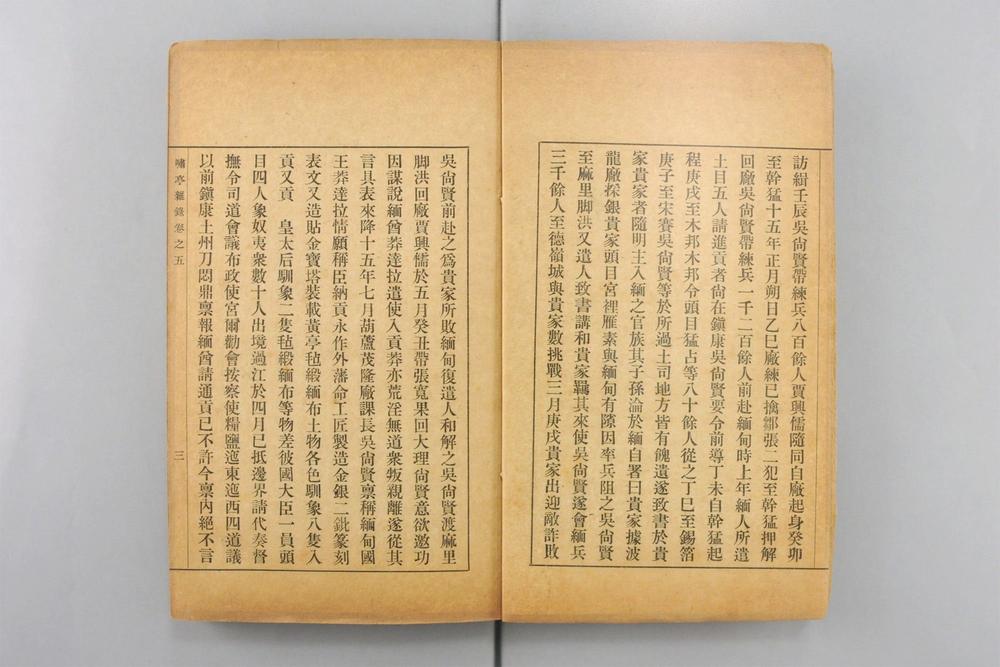 訪緝壬辰吳尙賢帶練兵八百餘人賈興儒隨同自廠起身癸卯
至幹猛十五年正月朔日乙巳廠練已擒鄒張二犯至幹猛押解
回廠吳尙賢帶練兵一千二百餘人前赴緬甸時上年緬人所遣
土目五人請進貢者尙在鎭康吳尙賢要令前導丁未自幹猛起
程庚戌至木邦木邦令頭目猛占等八十餘人從之丁巳至錫箔
庚子至宋賽吳尙賢等於所過土司地方皆有餽遺遂致書於貴
家貴家者隨明主入緬之官族其子孫淪於緬自署曰貴家據波
龍廠採銀貴家頭目宮裡雁素與緬甸有隙因率兵阻之吳尙賢
至麻里脚洪又遣人致書講和貴家羈其來使吳尙賢遂會緬兵
三千餘人至德嶺城與貴家數挑戰三月庚戌貴家出迎敵詐敗
吳尙賢前赴之爲貴家所敗緬甸復遣人和解之吳尙賢渡麻里
脚洪回廠賈興儒於五月癸丑帶張寬果回大理尙賢意欲邀功
因謀說緬酋莽達拉遣使入貢莽亦荒淫無道衆叛親離遂從其
言具表來降十五年七月葫蘆茂隆廠課長吳尙賢稟稱緬甸國
王莽達拉情願稱臣納貢永作外藩命工匠製造金銀二鈚篆刻
表文又造貼金寶塔裝載黃亭毡緞緬布土物各色馴象八隻入
貢又貢　皇太后馴象二隻毡緞緬布等物差彼國大臣一員頭
目四人象奴夷衆數十人出境過江於四月已抵邊界請代奏督
撫令司道會議布政使宮爾勸會按察使糧鹽迤東迤西四道議
以前鎭康土州刀悶鼎稟報緬酋請通貢已不許今稟內絕不言
嘯亭雜錄卷之五
三